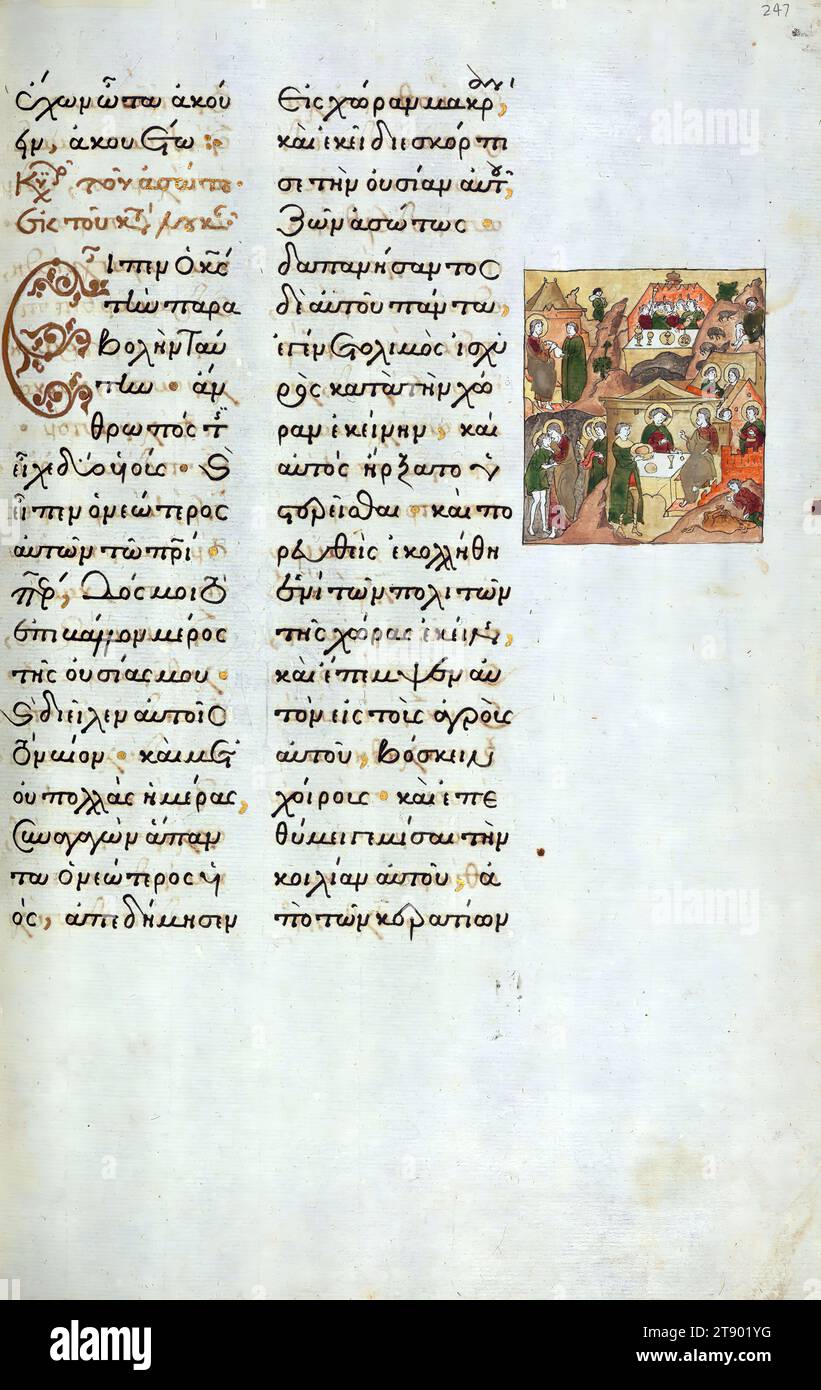 247
ἔχων ὦτα ἀκού
ειν, ἀκουέτω :
Κυ τοῦ ἀσώτου·
ἐκ τοῦ κτ λουκ
Εἶπεν ὁ κς
τὴν παρα
βολὴν ταύ
την · ἄν
θρωπός τ
εἶχε δύο υἱούς · καὶ
εἶπεν ὁ νεώτερος
αὐτῶν τῶ πρί ·
περ, δός μοι τὸ
ἐπιβάλλον μέρος
τῆς οὐσίας μου ·
καὶ διεῖλεν αὐτοῖς
τὸν βίον · καὶ μετ
οὐ πολλὰς ἡμέρας,
συναγαγὼν ἅπαν
τα ὁ νεώτερος υἱ
ός, ἀπεδήμησεν
εἰς χώραν μακράν,
καὶ ἐκεῖ διεσκόρπι
σε τὴν οὐσίαν αὐτοῦ,
ζῶν ἀσώτως ·
δαπανήσαντος
δὲ αὐτοῦ πάντα,
ἐγένετο λιμὸς ἰσχυ
ρὸς κατὰ τὴν χώ
ραν ἐκείνην · καὶ
αὐτὸς ἤρξατο ὑ
στερεῖσθαι · καὶ πο
ρευθεὶς ἐκολλήθη
ἑνὶ τῶν πολιτῶν
τῆς χώρας ἐκείνης,
καὶ ἔπεμψεν αὐ
τὸν εἰς τοὺς ἀγροὺς
αὐτοῦ, βόσκειν
χοίρους · καὶ ἐπε
θύμει γεμίσαι τὴν
κοιλίαν αὐτοῦ, ἀ
πὸ τῶν κερατίων
alamy
Image ID: 2T901YG
www.alamy.com